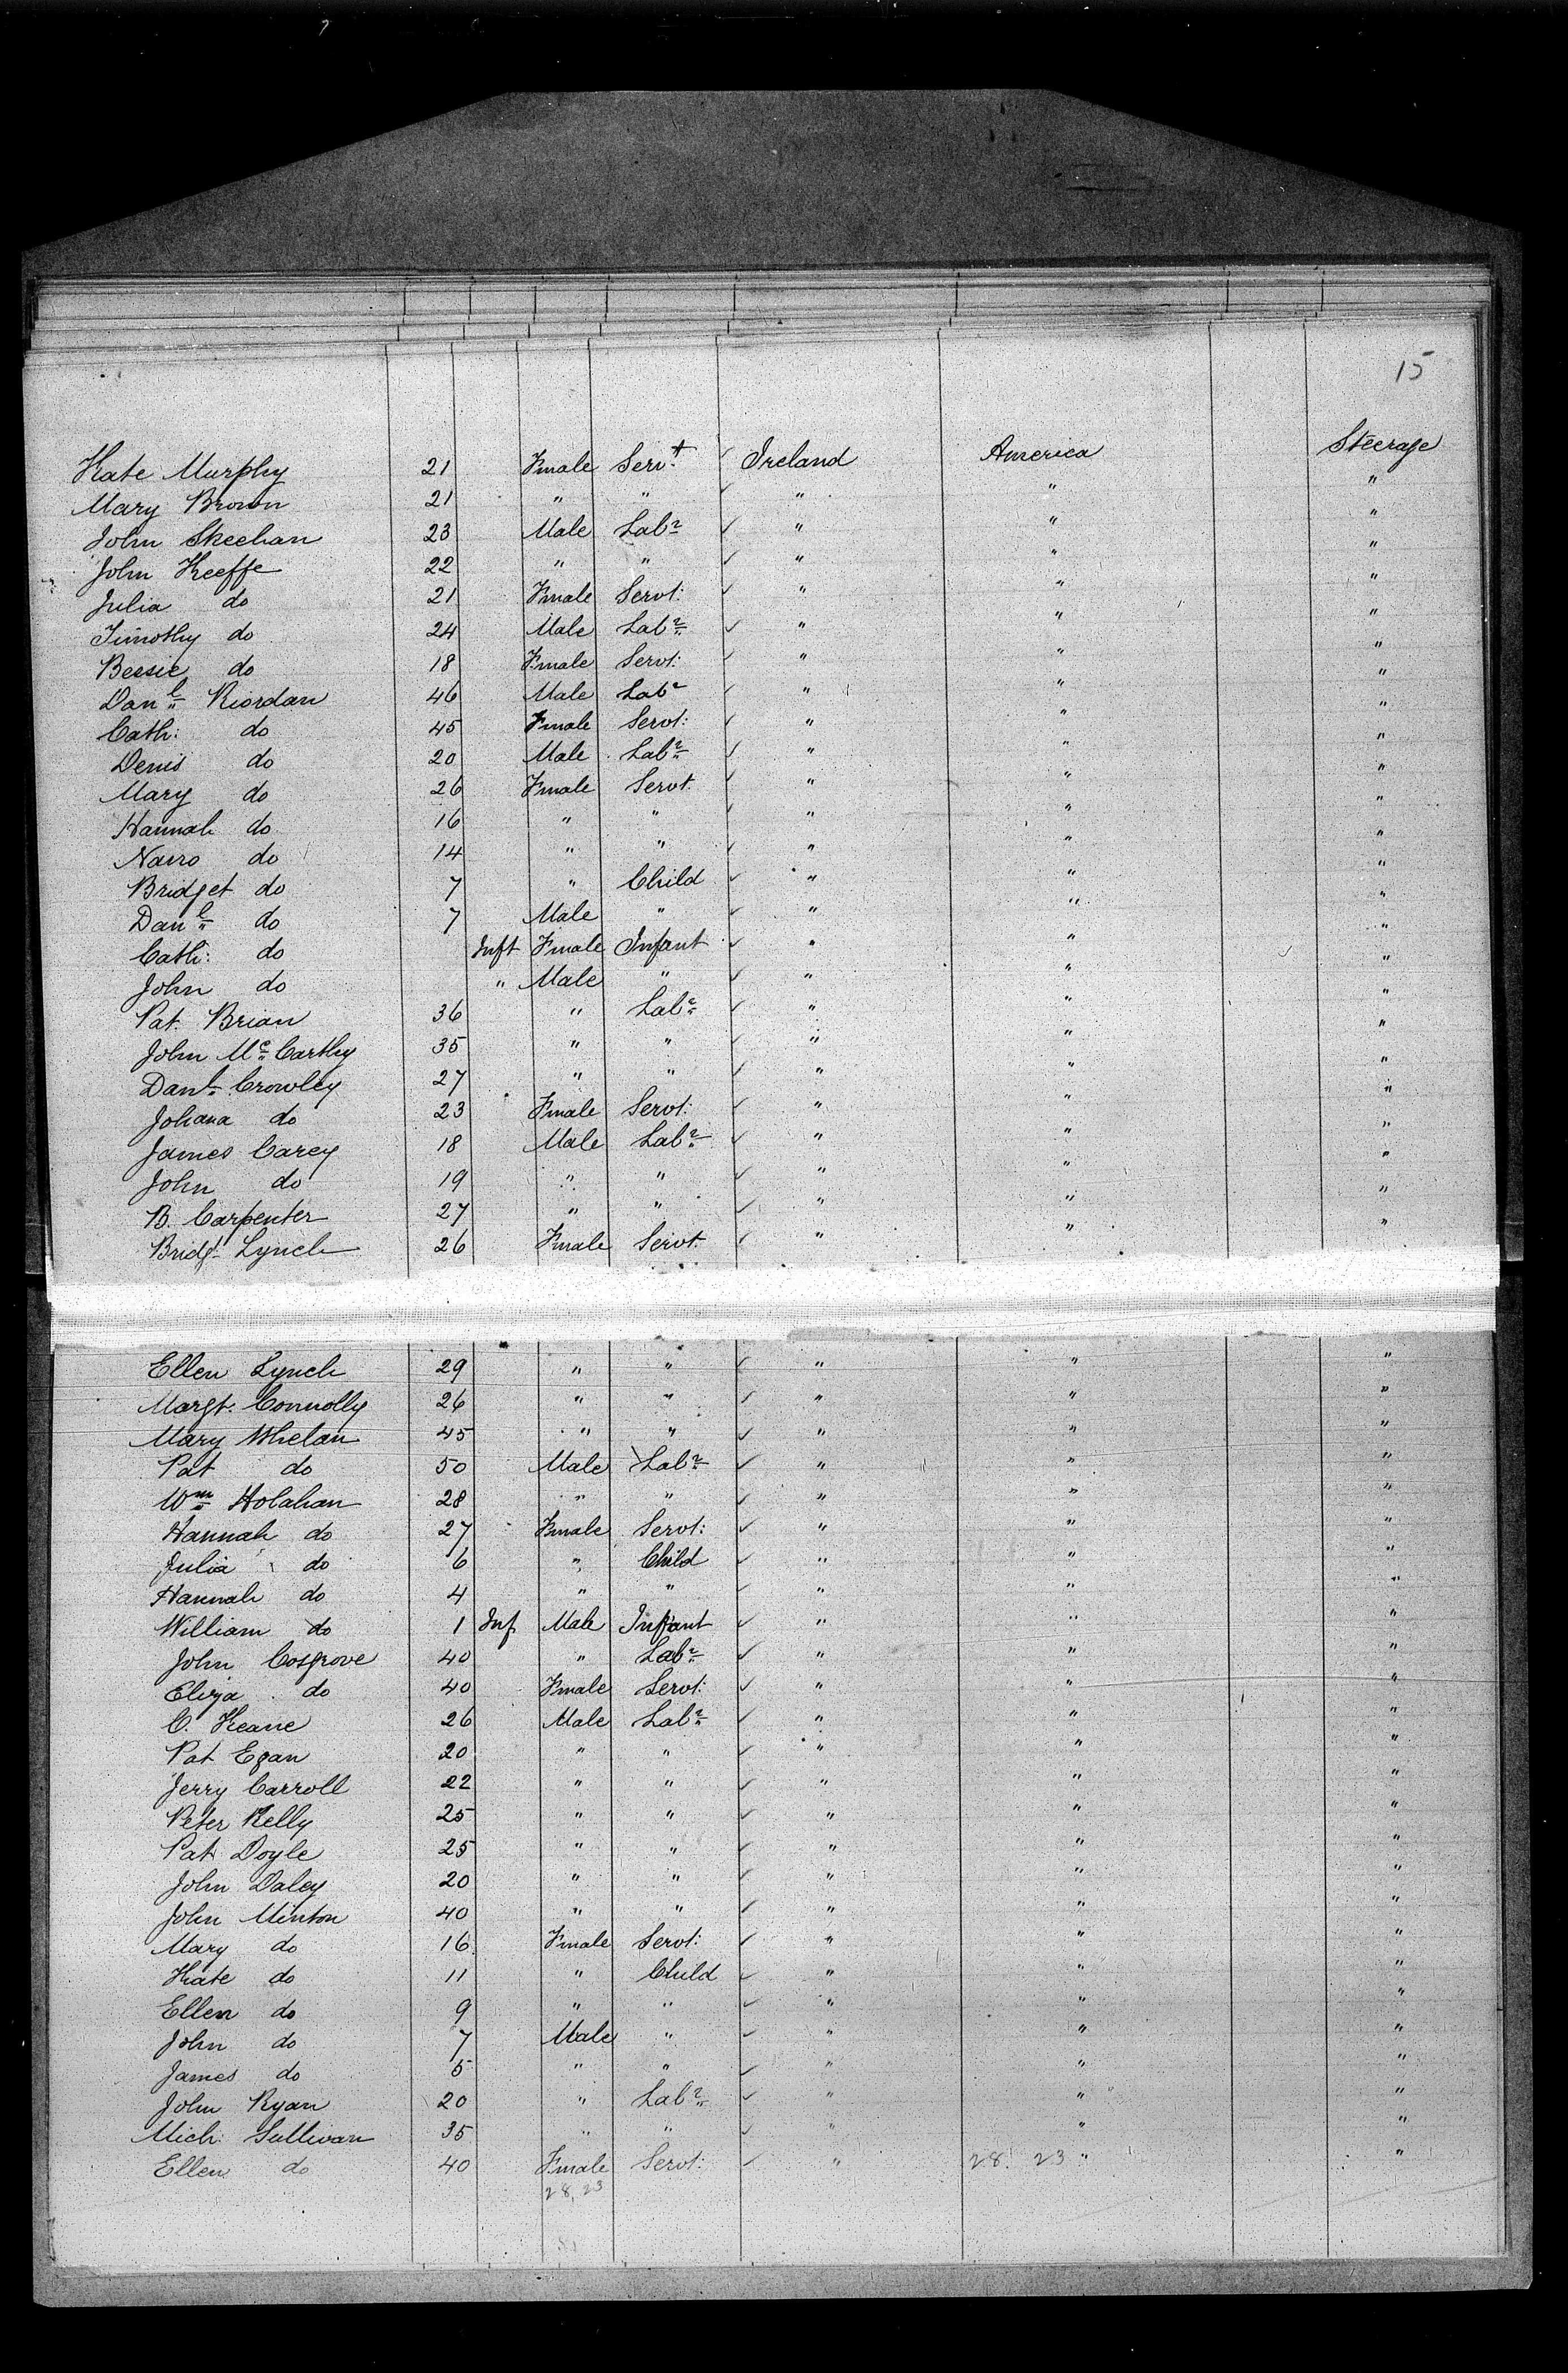 15
Kate Murphy 21 Fmale Servt ✓ Ireland America Steerage
Mary Brown 21 " " ✓ " " "
John Sheehan 23 Male Labr ✓ " " "
John Keeffe 22 " " ✓ " " "
Julia do 21 Fmale Servt: ✓ " " "
Timothy do 24 Male Labr ✓ " " "
Bessie do 18 Fmale Servt: ✓ " " "
Danl Riordan 46 Male Labr ✓ " " "
Cath: do 45 Fmale Servt: ✓ " " "
Denis do 20 Male Labr ✓ " " "
Mary do 26 Fmale Servt. ✓ " " "
Hannah do 16 " " ✓ " " "
Nano do 14 " " ✓ " " "
Bridget do 7 " Child ✓ " " "
Danl do 7 Male " ✓ " " "
Cath: do Inft Fmale Infant ✓ " " "
John do " Male " ✓ " " "
Pat. Brian 36 " Labr ✓ " " "
John Mc Carthy 35 " " ✓ " " "
Danl. Crowley 27 " " ✓ " " "
Johana do 23 Fmale Servt: ✓ " " "
James Carey 18 Male Labr ✓ " " "
John do 19 " " ✓ " " "
B. Carpenter 27 " " ✓ " " "
Bridgt Lynch 26 Fmale Servt. ✓ " " "
Ellen Lynch 29 " " ✓ " " "
Margt. Connolly 26 " " ✓ " " "
Mary Whelan 45 " " ✓ " " "
Pat do 50 Male Labr ✓ " " "
Wm Holahan 28 " " ✓ " " "
Hannah do 27 Fmale Servt: ✓ " " "
Julia do 6 " Child ✓ " " "
Hannah do 4 " " ✓ " " "
William do 1 Inf Male Infant ✓ " " "
John Cosgrove 40 " Labr ✓ " " "
Eliza do 40 Fmale Servt: ✓ " " "
C. Keane 26 Male Labr ✓ " " "
Pat Egan 20 " " ✓ " " "
Jerry Carroll 22 " " ✓ " " "
Peter Kelly 25 " " ✓ " " "
Pat Doyle 25 " " ✓ " " "
John Daley 20 " " ✓ " " "
John Minton 40 " " ✓ " " "
Mary do 16 Fmale Servt: ✓ " " "
Kate do 11 " Child ✓ " " "
Ellen do 9 " " ✓ " " "
John do 7 Male " ✓ " " "
James do 5 " " ✓ " " "
John Ryan 20 " Labr ✓ " " "
Mich: Sullivan 35 " " ✓ " " "
Ellen do 40 Fmale Servt: ✓ " 28. 23 " "
28, 23